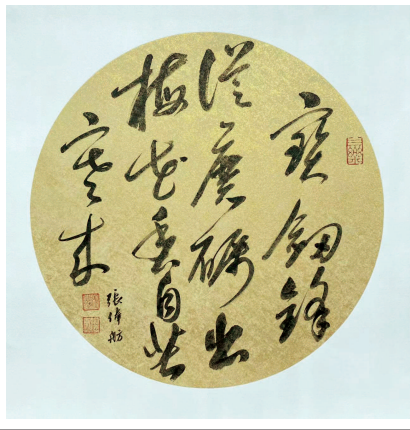 寶劍鋒
從磨礪出
梅花香自苦
寒來
張